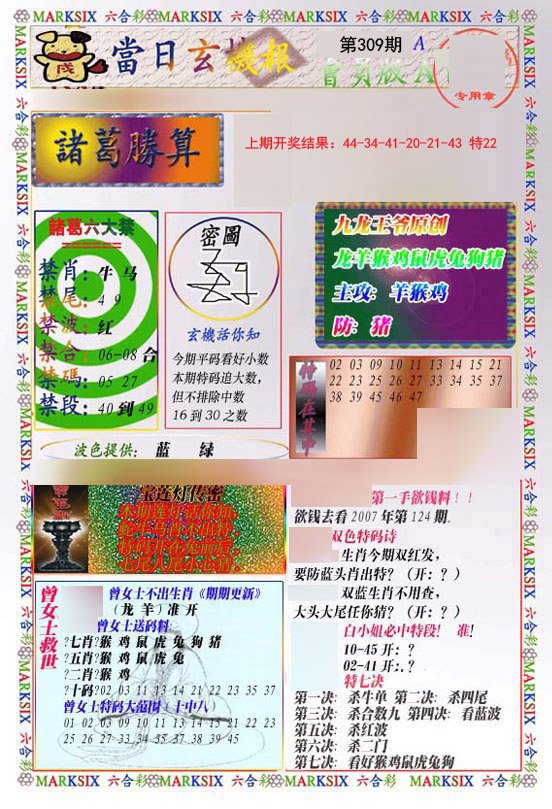 MARKSIX 六合彩 MARKSIX 六合彩 MARKSIX 六合彩 MARKSIX 六合彩 MARKSIX
當日玄機報
第309期 A
會員版A
专用章
諸葛勝算
上期开奖结果：44-34-41-20-21-43 特22
諸葛六大禁
禁肖：牛 马
禁尾：4 9
禁波：红
禁合：06-08 合
禁碼：05 27
禁段：40 到 49
密圖
玄機話你知
今期平码看好小数
本期特码追大数，
但不排除中数
16 到 30 之数
九龙王爷原创
龙羊猴鸡鼠虎兔狗猪
主攻：羊猴鸡
防：猪
特码在其中
02 03 09 10 11 13 14 15 21
22 23 25 26 27 33 34 35 37
38 39 45 46 47
波色提供： 蓝 绿
宝莲灯传密
第一手欲钱料！！
欲钱去看 2007 年第 124 期.
双色特码诗
生肖今期双红发，
要防蓝头肖出特？（开：？）
双蓝生肖不用查，
大头大尾任你猜？（开：？）
白小姐必中特段！ 准！
10-45 开：？
02-41 开：.？
特七决
第一决：杀牛单 第二决：杀四尾
第三决：杀合数九 第四决：看蓝波
第五决：杀红波
第六决：杀二门
第七决：看好猴鸡鼠虎兔狗
曾女士救世
曾女士不出生肖《期期更新》
（龙 羊）准 开
曾女士送码料：
?七肖?猴 鸡 鼠 虎 兔 狗 猪
?五肖?猴 鸡 鼠 虎 兔
?二肖?猴 鸡
?十码?02 03 11 13 14 21 22 23 35 37
曾女士特码大范围（十中八）
01 02 03 09 10 11 13 14 15 21 22 23
25 26 27 33 34 35 37 38 39 45
MARKSIX 六合彩 MARKSIX 六合彩 MARKSIX 六合彩 MARKSIX 六合彩 MARKSIX